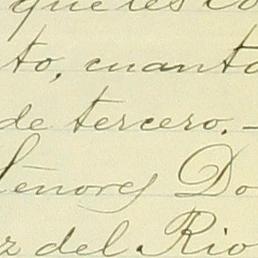 que les co
to, cuanto
de tercero.-
Señores Do
z del Rio